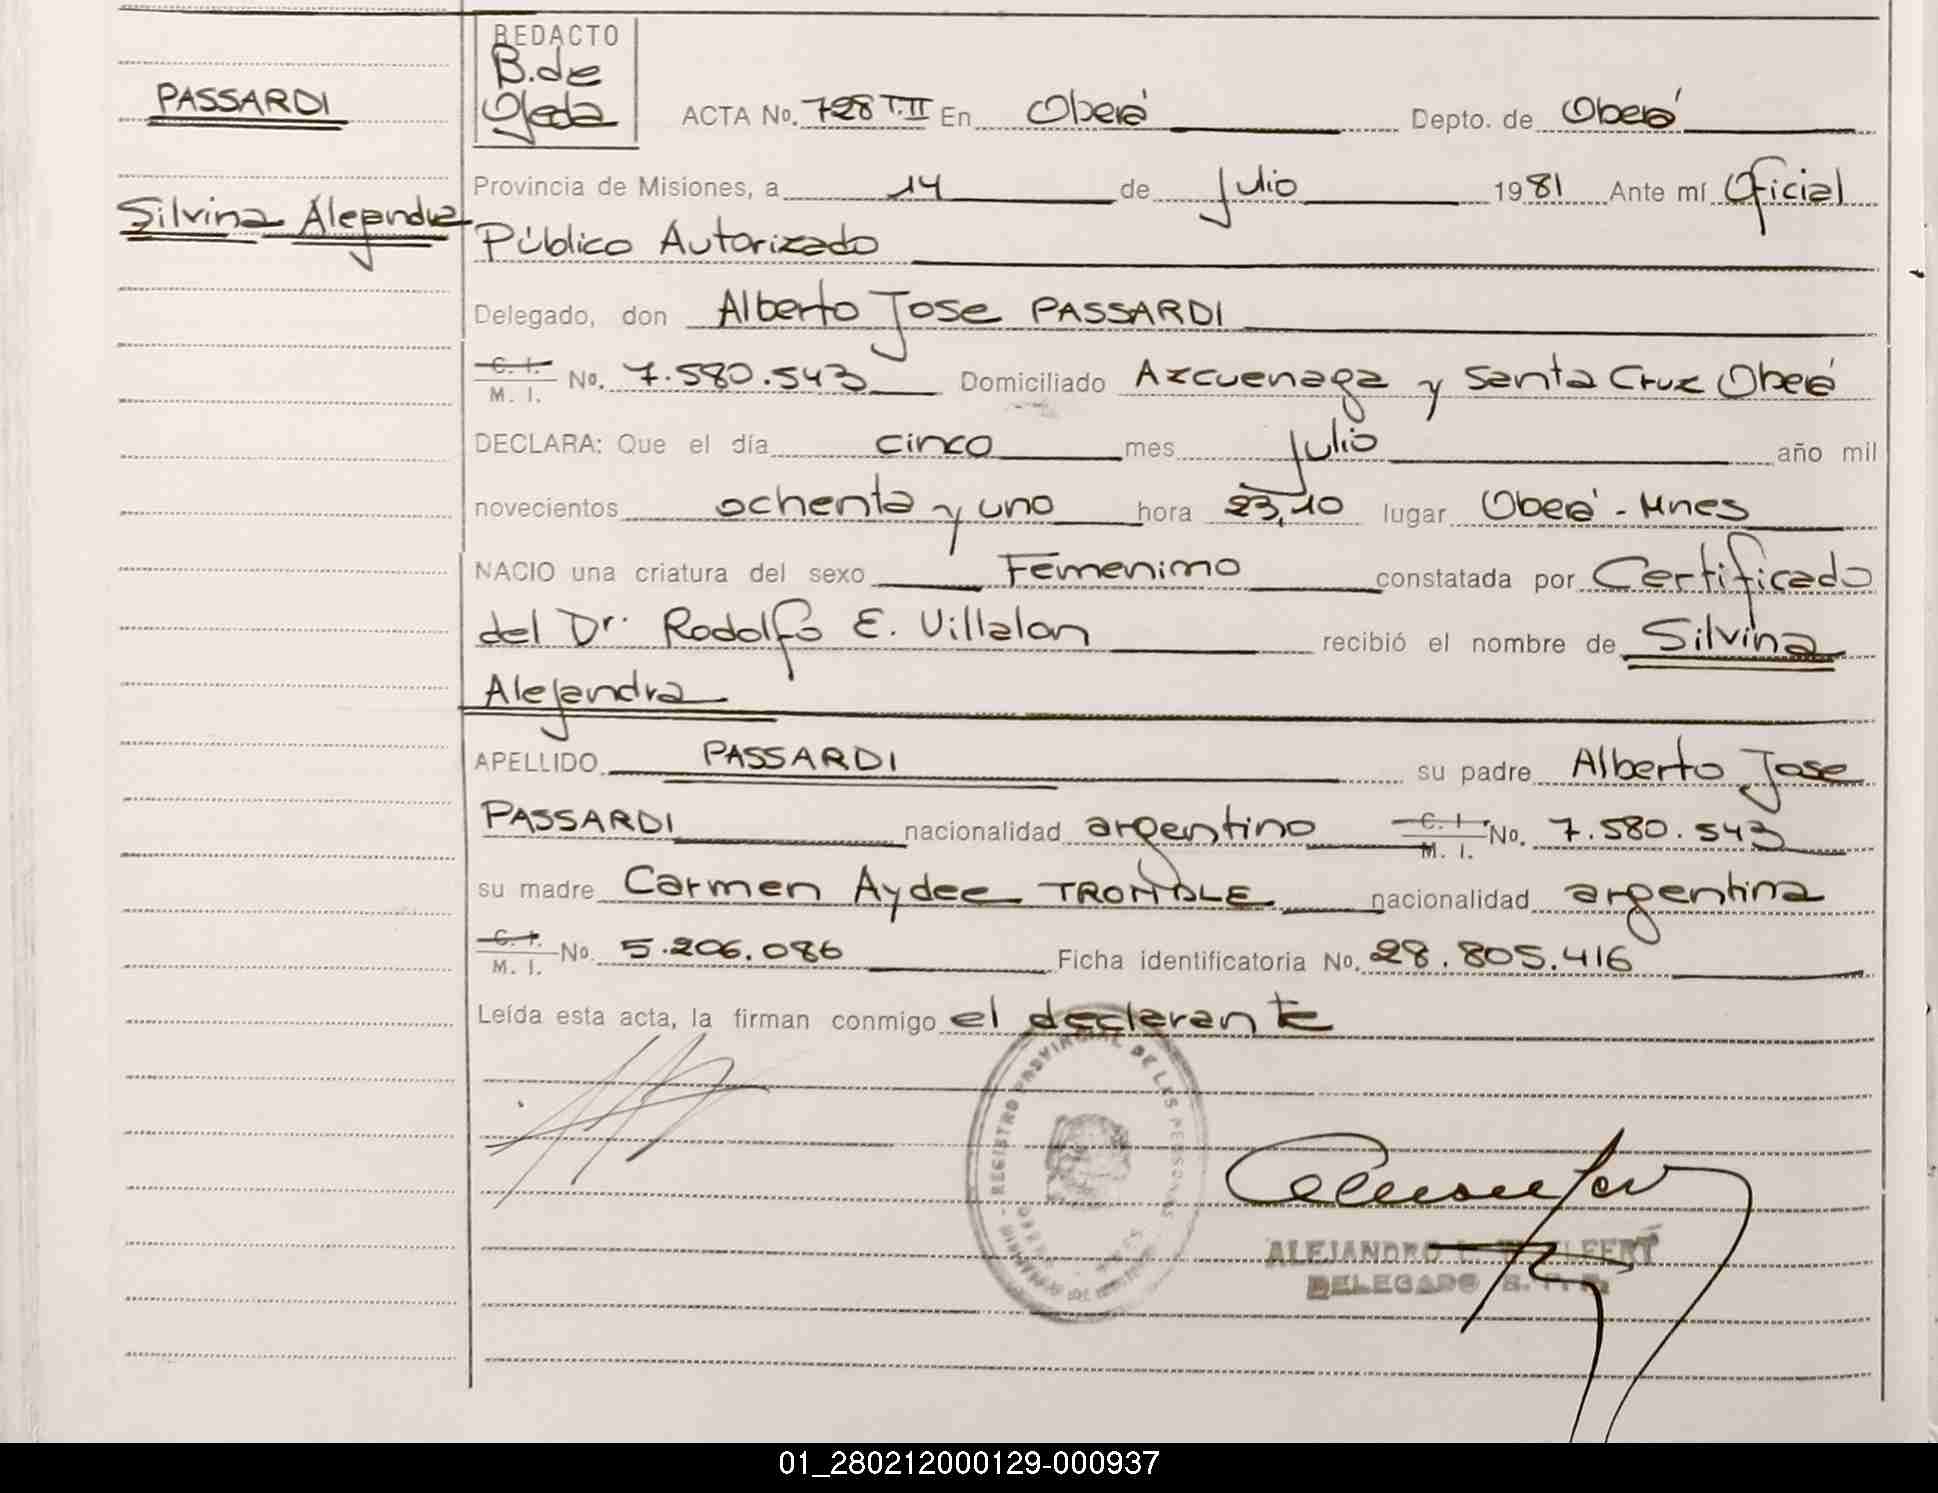 PASSARDI
Silvina Alejandra
REDACTO
B. de
Ojeda
ACTA No. 728 T.II En Oberá Depto. de Oberá
Provincia de Misiones, a 14 de Julio 1981 Ante mí Oficial
Público Autorizado
Delegado, don Alberto Jose PASSARDI
C. I.
M. I. No. 7.580.543 Domiciliado Azcuenaga y Santa Cruz Oberá
DECLARA: Que el día cinco mes Julio año mil
novecientos ochenta y uno hora 23,10 lugar Oberá - Mnes
NACIO una criatura del sexo Femenimo constatada por Certificado
del Dr. Rodolfo E. Villalon recibió el nombre de Silvina
Alejandra
APELLIDO PASSARDI su padre Alberto Jose
PASSARDI nacionalidad argentino C. I. M. I. No. 7.580.543
su madre Carmen Aydee nacionalidad argentina
C. I.
M. I. No. 5.206.086 Ficha identificatoria No. 28.805.416
Leída esta acta, la firman conmigo el declarante
REGISTRO PROVINCIAL DE LAS PERSONAS
ALEJANDRO
DELEGADO
01_280212000129-000937